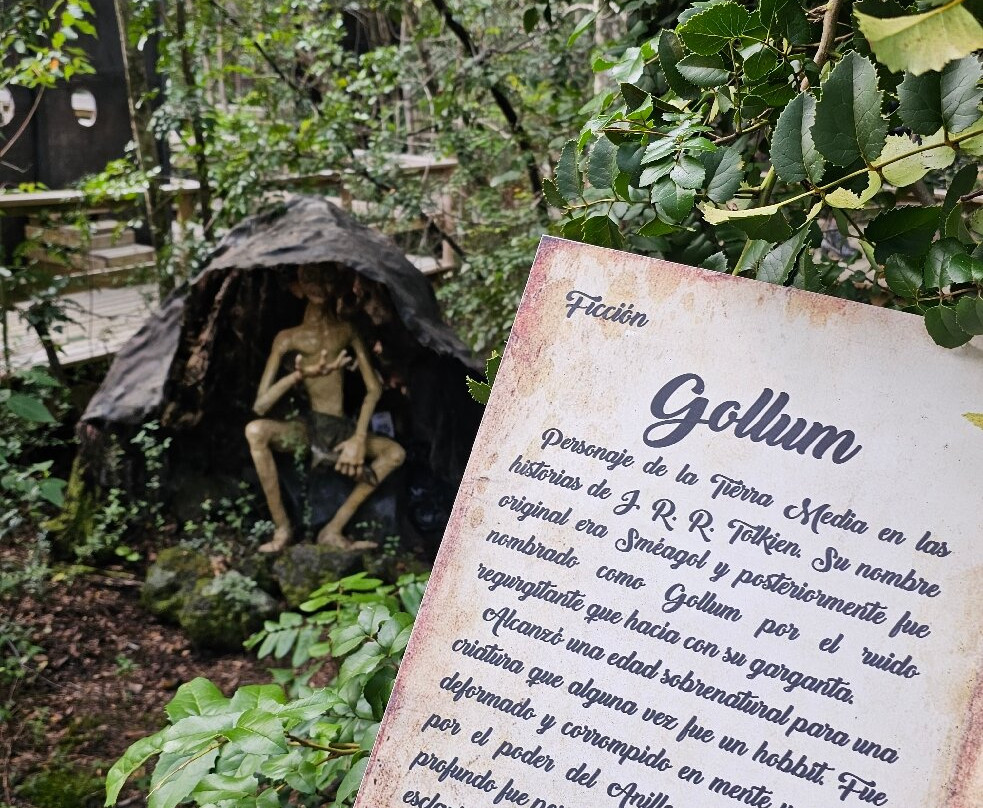 Ficción
Gollum
Personaje de la Tierra Media en las
historias de J. R. R. Tolkien. Su nombre
original era Sméagol y posteriormente fue
nombrado como Gollum por el ruido
regurgitante que hacia con su garganta.
Alcanzó una edad sobrenatural para una
criatura que alguna vez fue un hobbit. Fue
deformado y corrompido en mente
por el poder del Anillo
profundo fue